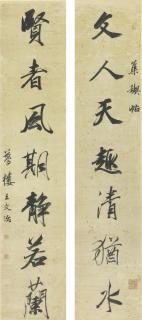 集禊帖
文人天趣清猶水
賢者風期靜若蘭
夢樓王文治